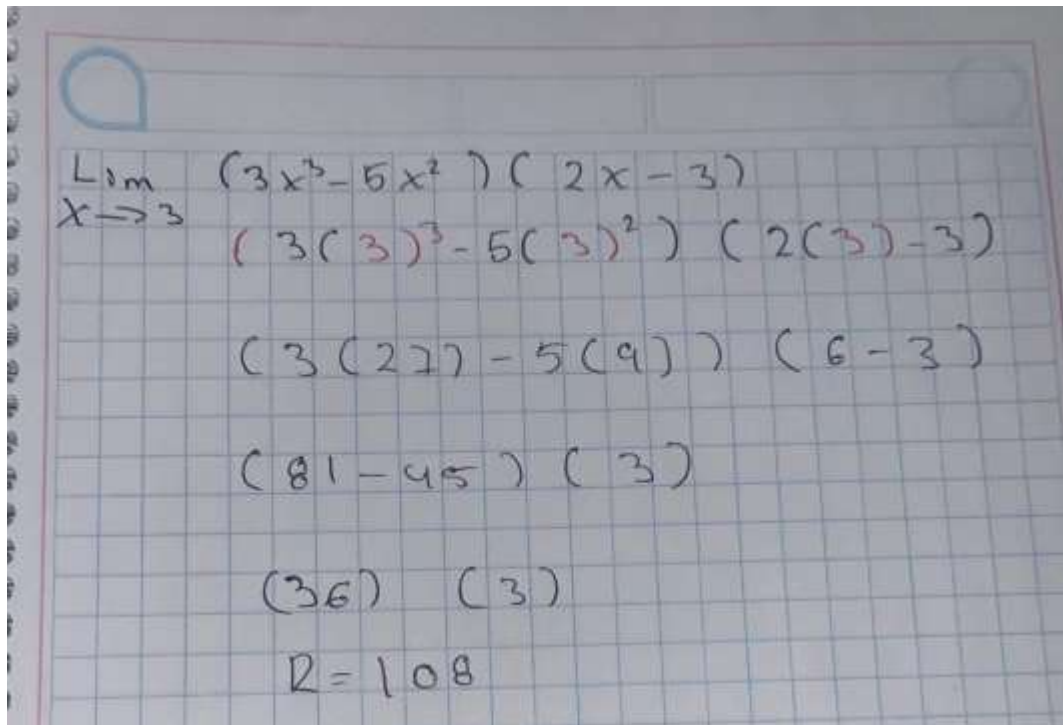 Lim (3x³-5x²)(2x-3)
x→3
(3(3)³-5(3)²) (2(3)-3)
(3(27)-5(9)) (6-3)
(81-45) (3)
(36) (3)
R=108